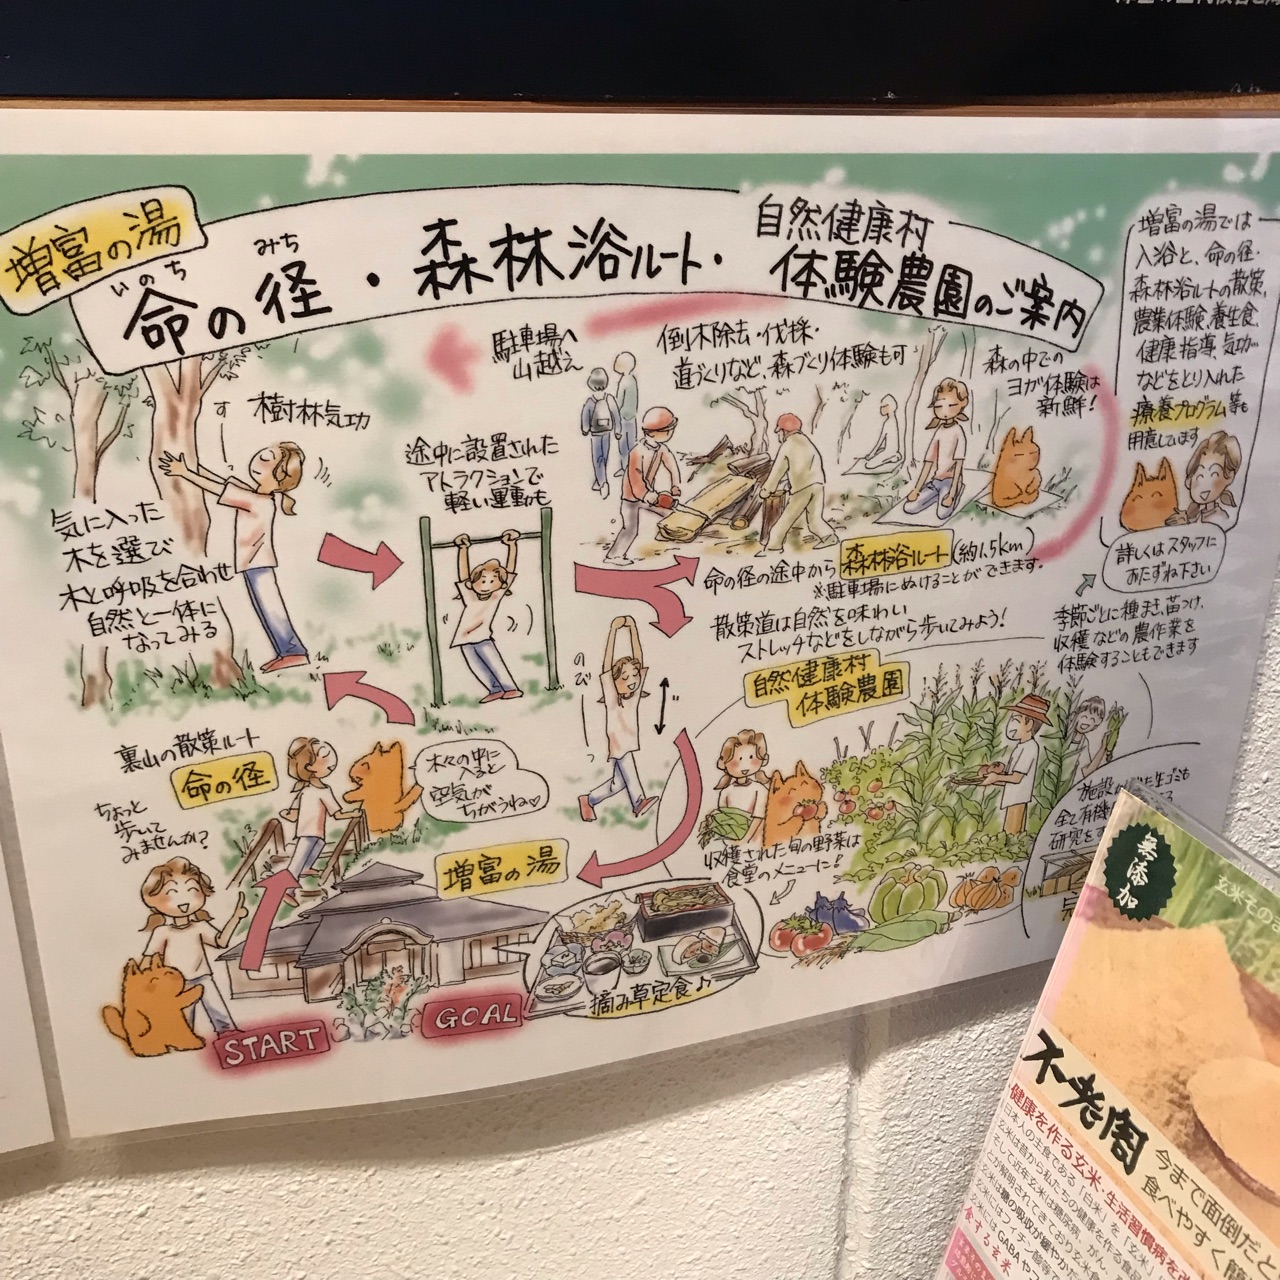 増富の湯
いのち
みち
命の径・森林浴ルート・
自然健康村
体験農園のご案内
増富の湯では
入浴と、命の径・
森林浴ルートの散策、
農業体験、養生食、
健康指導、気功
などをとり入れた
療養プログラム等も
用意しています
詳しくはスタッフに
おたずね下さい
駐車場へ
山越え
倒木除去・伐採・
道づくりなど、森づくり体験も可
森の中での
ヨガ体験は
新鮮!
す
樹林気功
気に入った
木を選び
木と呼吸を合わせ
自然と一体に
なってみる
途中に設置された
アトラクションで
軽い運動も
命の径の途中から森林浴ルート(約1.5km)
※駐車場にぬけることができます。
散策道は自然を味わい
ストレッチなどをしながら歩いてみよう!
のび
季節ごとに種まき、苗つけ、
収穫などの農作業を
体験することもできます
自然健康村
体験農園
裏山の散策ルート
命の径
木々の中に
入ると
空気が
ちがうね♡
ちょっと
歩いて
みませんか?
増富の湯
収穫された旬の野菜は
食堂のメニューに!
施設
生ゴミも
全て有機
研究をす
摘み草定食♪
START
GOAL
無添加
玄米その
不老閣
今まで面倒だと
食べやすく簡
健康を作る玄米・生活習慣病を
日本人の主食である「白米」を「玄米」
玄米は昔から私たちの健康を作る食
そして近年玄米は糖尿病、がん、
とが解明されてきており玄米食
玄米は糖の吸収が緩やかた
玄米にはフィチン酸等で
玄米には GABA やフ
食する玄米